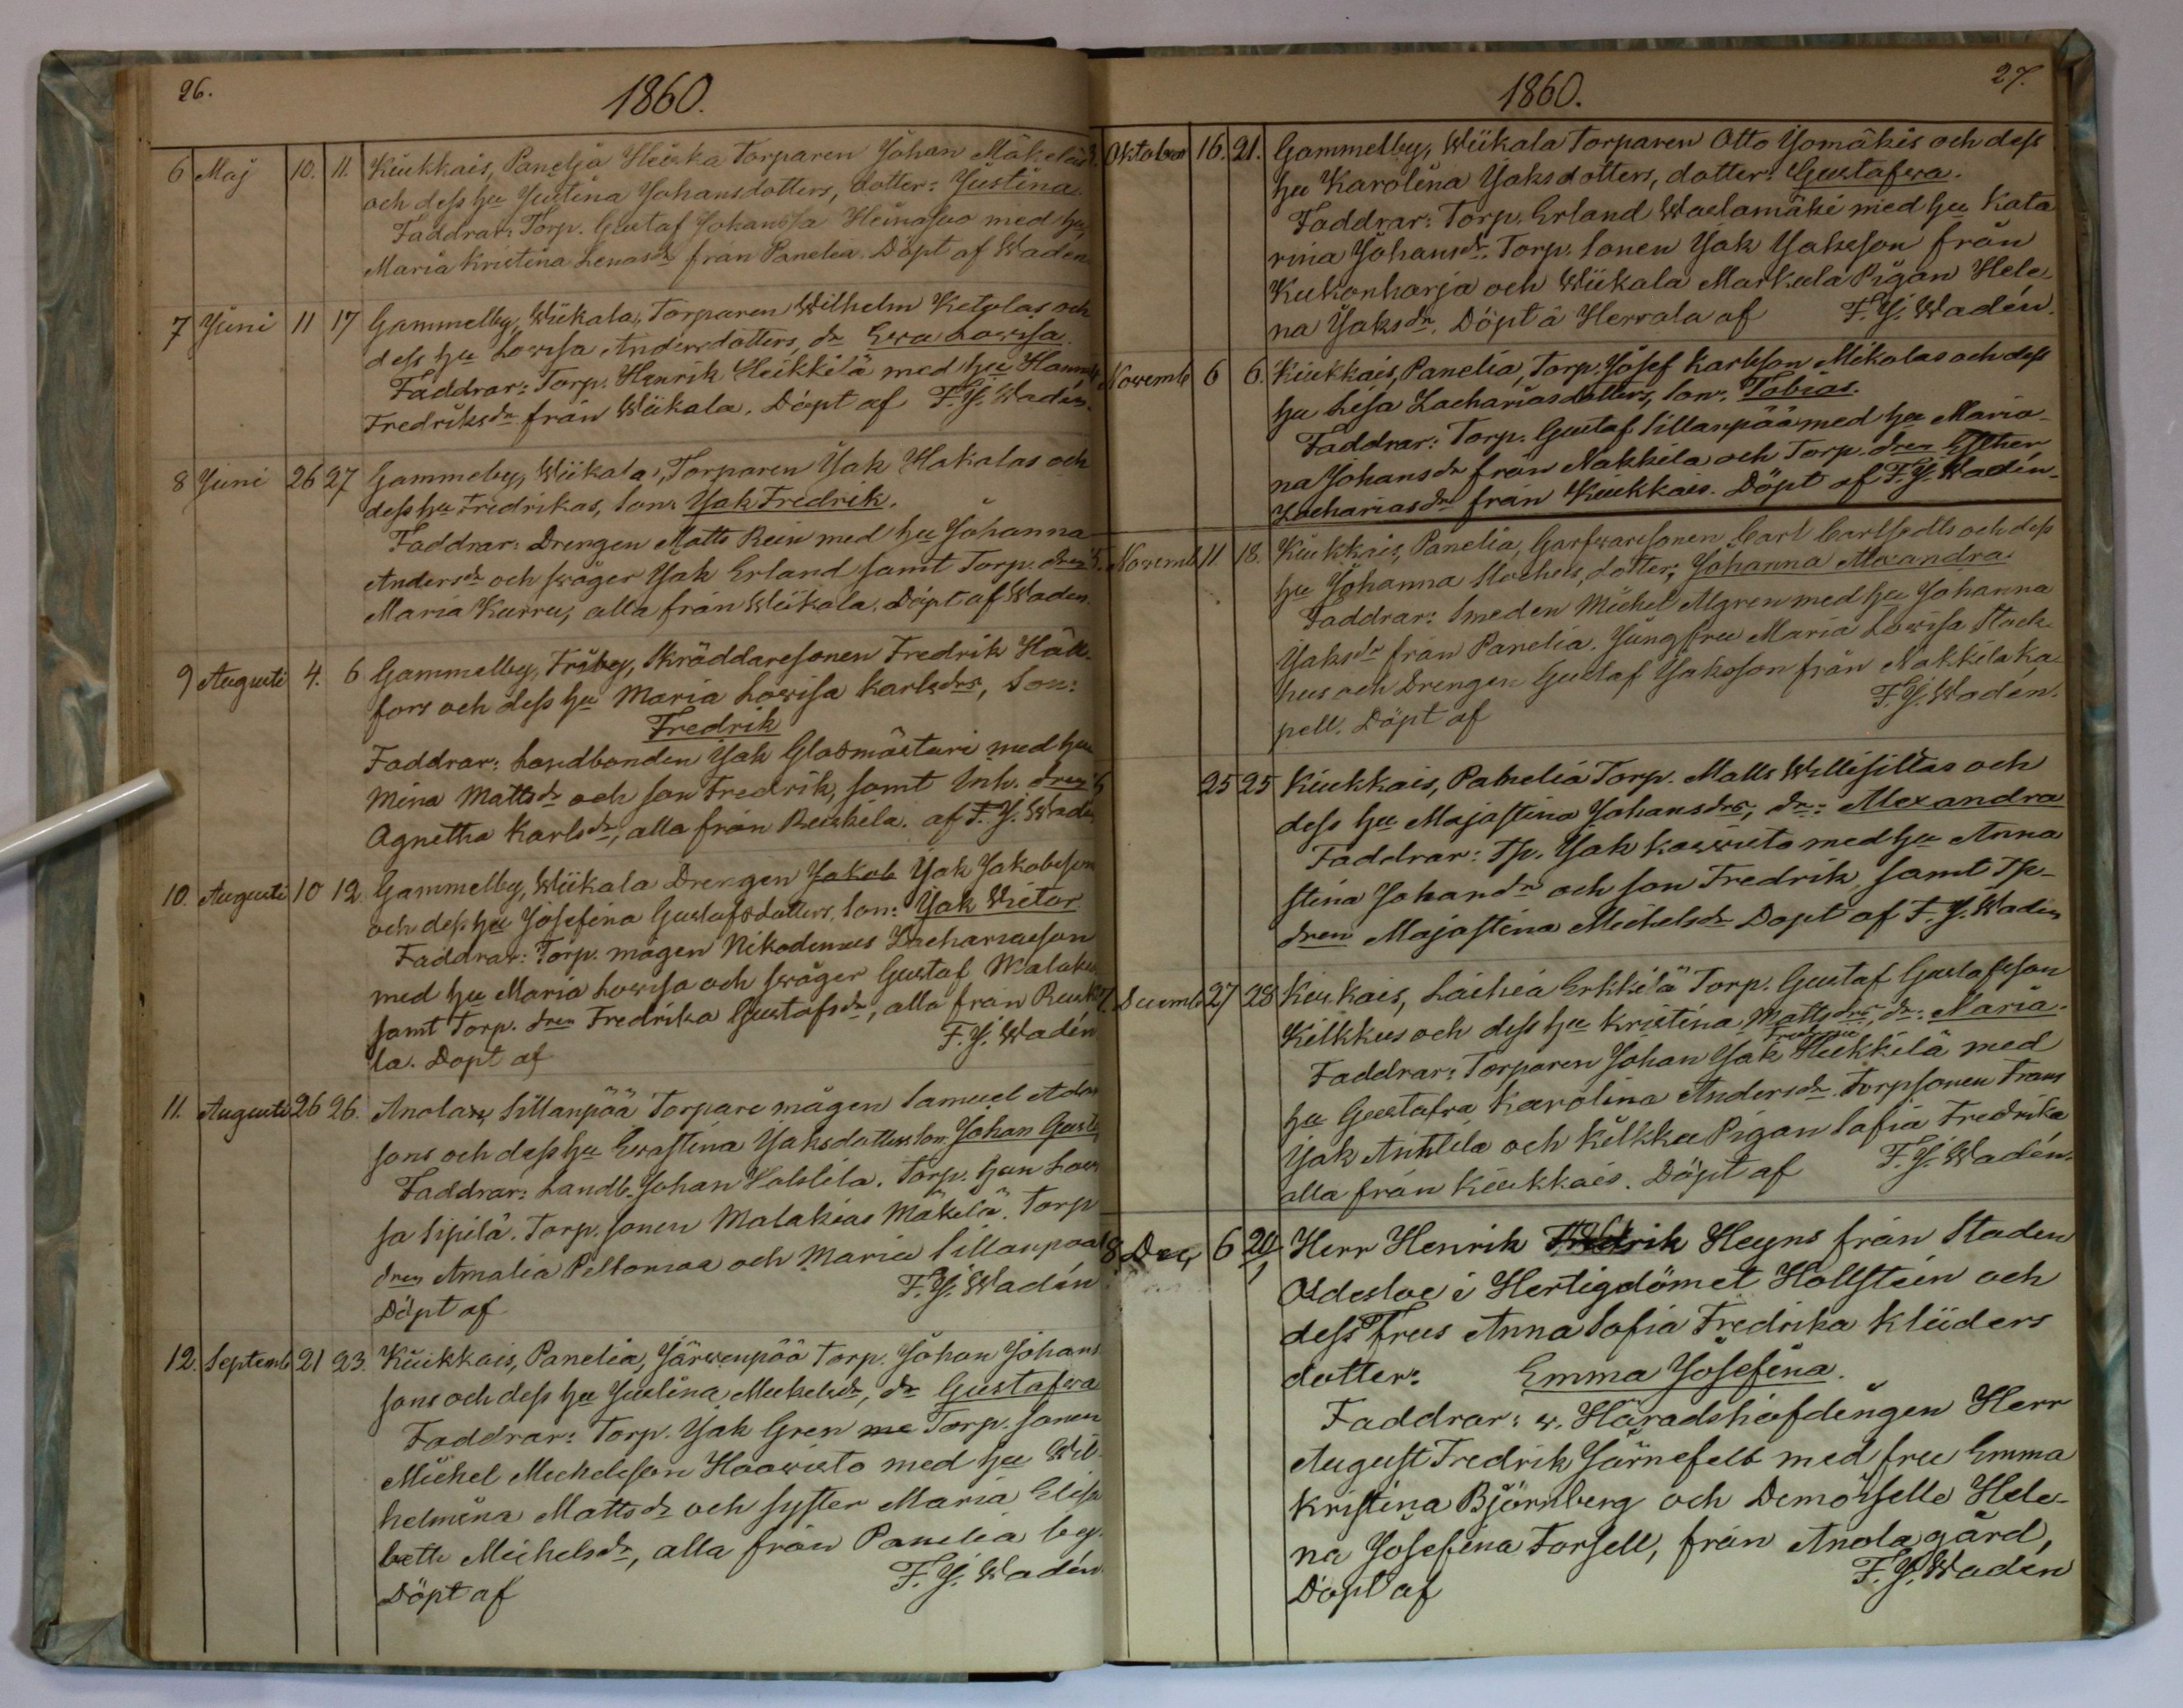 26.
1860.
6 Maj 10. 11. Kiukkais, Panelia Heiska Torparen Johan Mäkeläs
och dess hu Justina Johansdotters, dotter: Justina
Faddrar: Torp. Gustaf Johansson Heinäsuo med hu
Maria Kristina Lenasdr från Panelia. Döpt af Wadén
7 Juni 11 17 Gammelby, Wiikala, Torparen Wilhelm Ketolas och
dess hu Lowisa Andersdotters, dr Ewa Lowisa.
Faddrar: Torp. Henrik Heikkilä med hu Hanna
Fredriksdr från Wiikala. Döpt af F. J. Wadén.
8 Juni 26 27 Gammelby, Wiikala, Torparen Jak Hakalas och
dess hu Fredrikas, son: Jak Fredrik.
Faddrar: Drengen Matts Rein med hu Johanna
Andersdr och swåger Jak Erland samt Torp. dren
Maria Kurru, alla från Wiikala. Döpt af Wadén.
9 Augusti 4. 6 Gammelby, Friby, Skräddaresonen Fredrik Häll-
fors och dess hu Maria Lowisa Karlsdrs, Son:
Fredrik
Faddrar: Landbonden Jak Glasmästari med hu
Mina Mattsdr och son Fredrik, samt Inh. dren
Agnetha Karlsdr, alla från Ruskila. af F. J. Wadén
10. Augusti 10 12 Gammelby, Wiikala Drengen Jakob Jak Jakobsson
och dess hu Josefina Gustafsdotters, son: Jak Wictor
Faddrar: Torp. mågen Nikodemus Zachariaeson
med hu Maria Lowisa och swåger Gustaf
samt Torp. dren Fredrika Gustafsdr, alla från Ruski-
la. Döpt af F. J. Wadén
11. Augusti 26 26. Anola, Sillanpää Torpare mågen Samuel Adam
sons och dess hu Ewastina Jaksdotters son: Johan Gustaf
Faddrar: Landb. Johan Holslila. Torp. hun Lowi
sa Sipilä. Torp. sonen Malakias Mäkelä. Torp
dren Amalia Peltomaa och Maria Sillanpää
Döpt af F. J. Wadén
12. Septemb 21 23. Kiukkais, Panelia, Järwenpää Torp. Johan Johans
sons och dess hu Justina Mickelsdr, dr Gustafwa
Faddrar: Torp. Jak Gren me Torp. sonen
Mickel Mickelsson Haawisto med hu Wil-
helmina Mattsdr och syster Maria Elisa
beth Mickelsdr, alla från Panelia by.
Döpt af F. J. Wadén
1860.
27.
Oktober 16. 21. Gammelby, Wiikala Torparen Otto Jomäkis och dess
hu Karolina Jaksdotters, dotter: Gustafwa.
Faddrar: Torp. Erland Wastamäki med hu Kata
rina Johansdr. Torp. sonen Jak Jaksson från
Kukonharja och Wiikala Markula Pigan Hele-
na Jaksdr. Döpt å Herrala af F. J. Wadén.
Novemb 6 6. Kiukkais, Panelia, Torp. Josef Karlsson Mikolas och dess
hu Lisa Zachariasdotters, son: Tobias.
Faddrar: Torp. Gustaf Sillanpää med hu Maria-
na Johansdr från Nakkila och Torp. dren Esther
Zachariasdr från Kiukkais. Döpt af F. J. Wadén.
5. Novemb. 11 18. Kiukkais, Panelia, Garfwaresonen Carl Carlstedts och dess
hu Johanna Stockus, dotter: Johanna Alexandra.
Faddrar: Smeden Mickel Algren med hu Johanna
Jaksdr från Panelia. Jungfru Maria Lowisa Stock-
hus och Drengen Gustaf Jaksson från Nakkila ka-
pell. Döpt af F. J. Wadén.
6 25 25 Kiukkais, Panelia Torp. Matts Willisillas och
dess hu Majastina Johansdrs, dr: Alexandra
Faddrar: Tp. Jak Kowisto med hu Anna
Stina Johansdr och son Fredrik samt Tp-
dren Majastina Mickelsdr Döpt af F. J. Wadén
7. Decemb 27 28 Kiukais, Laihia Erkkilä Torp. Gustaf Gustafsson
Kilkkus och dess hu Kristina Mattsdrs, dr: Maria.
Faddrar: Torparen Johan Jak Heikkilä med
hu Gustafva Karolina Andersdr. Torpsonen Frans
Jak Anttila och Kilkku Pigan Sofia Fredrika
alla från Kiukkais. Döpt af F. J. Wadén.
8. Dec. 6 20 Herr Henrik Fredrik Heyns från Staden
Oldesloe i Hertigdömet Hollstein och
dess Frus Anna Sofia Fredrika Klüders
dotter: Emma Josefina.
Faddrar: v. Häradshöfdingen Herr
August Fredrik Järnefelt med fru Emma
Kristina Björnberg och Demoiselle Hele-
na Josefina Forsell, från Anola gård,
Döpt af F. J. Wadén